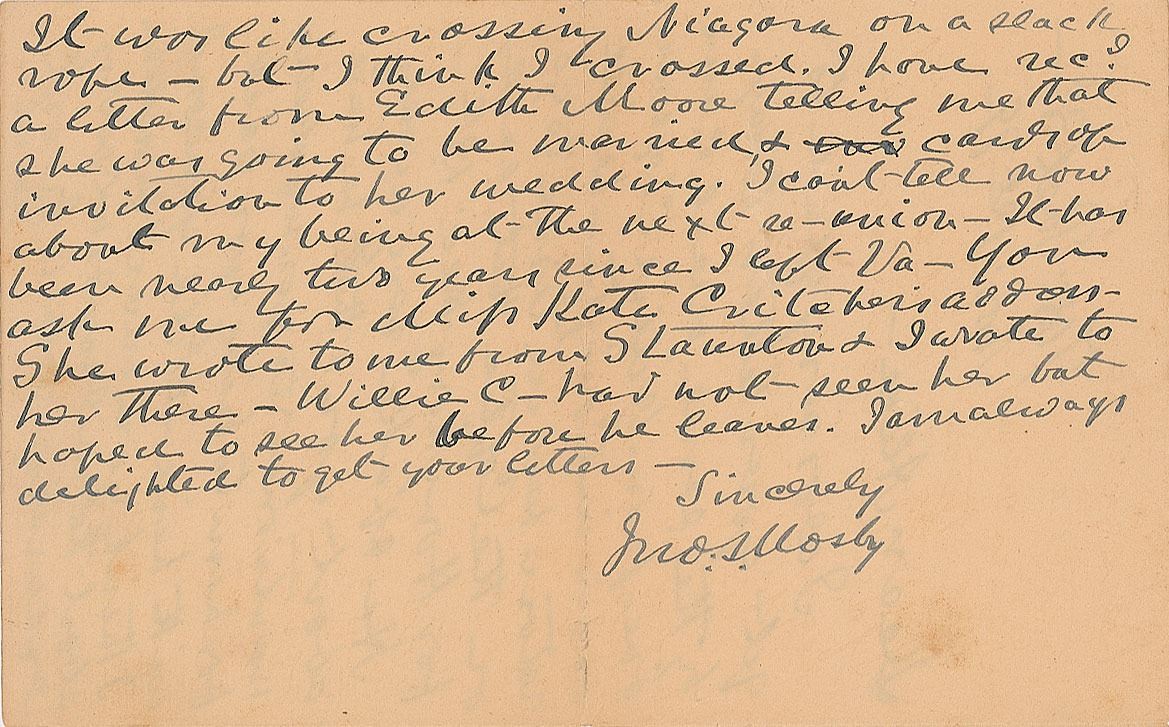 It was like crossing Niagara on a slack
rope – but I think I crossed. I have rec.d
a letter from Edith Moore telling me that
she was going to be married, & cards of
invitation to her wedding. I can't tell now
about my being at the next re-union – It has
been nearly two years since I left Va – You
ask me for Miss Kate Critcher's address –
She wrote to me from Staunton & I wrote to
her there – Willie C – had not seen her but
hoped to see her before he leaves. I am always
delighted to get your letters –
Sincerely
Jno. S. Mosby